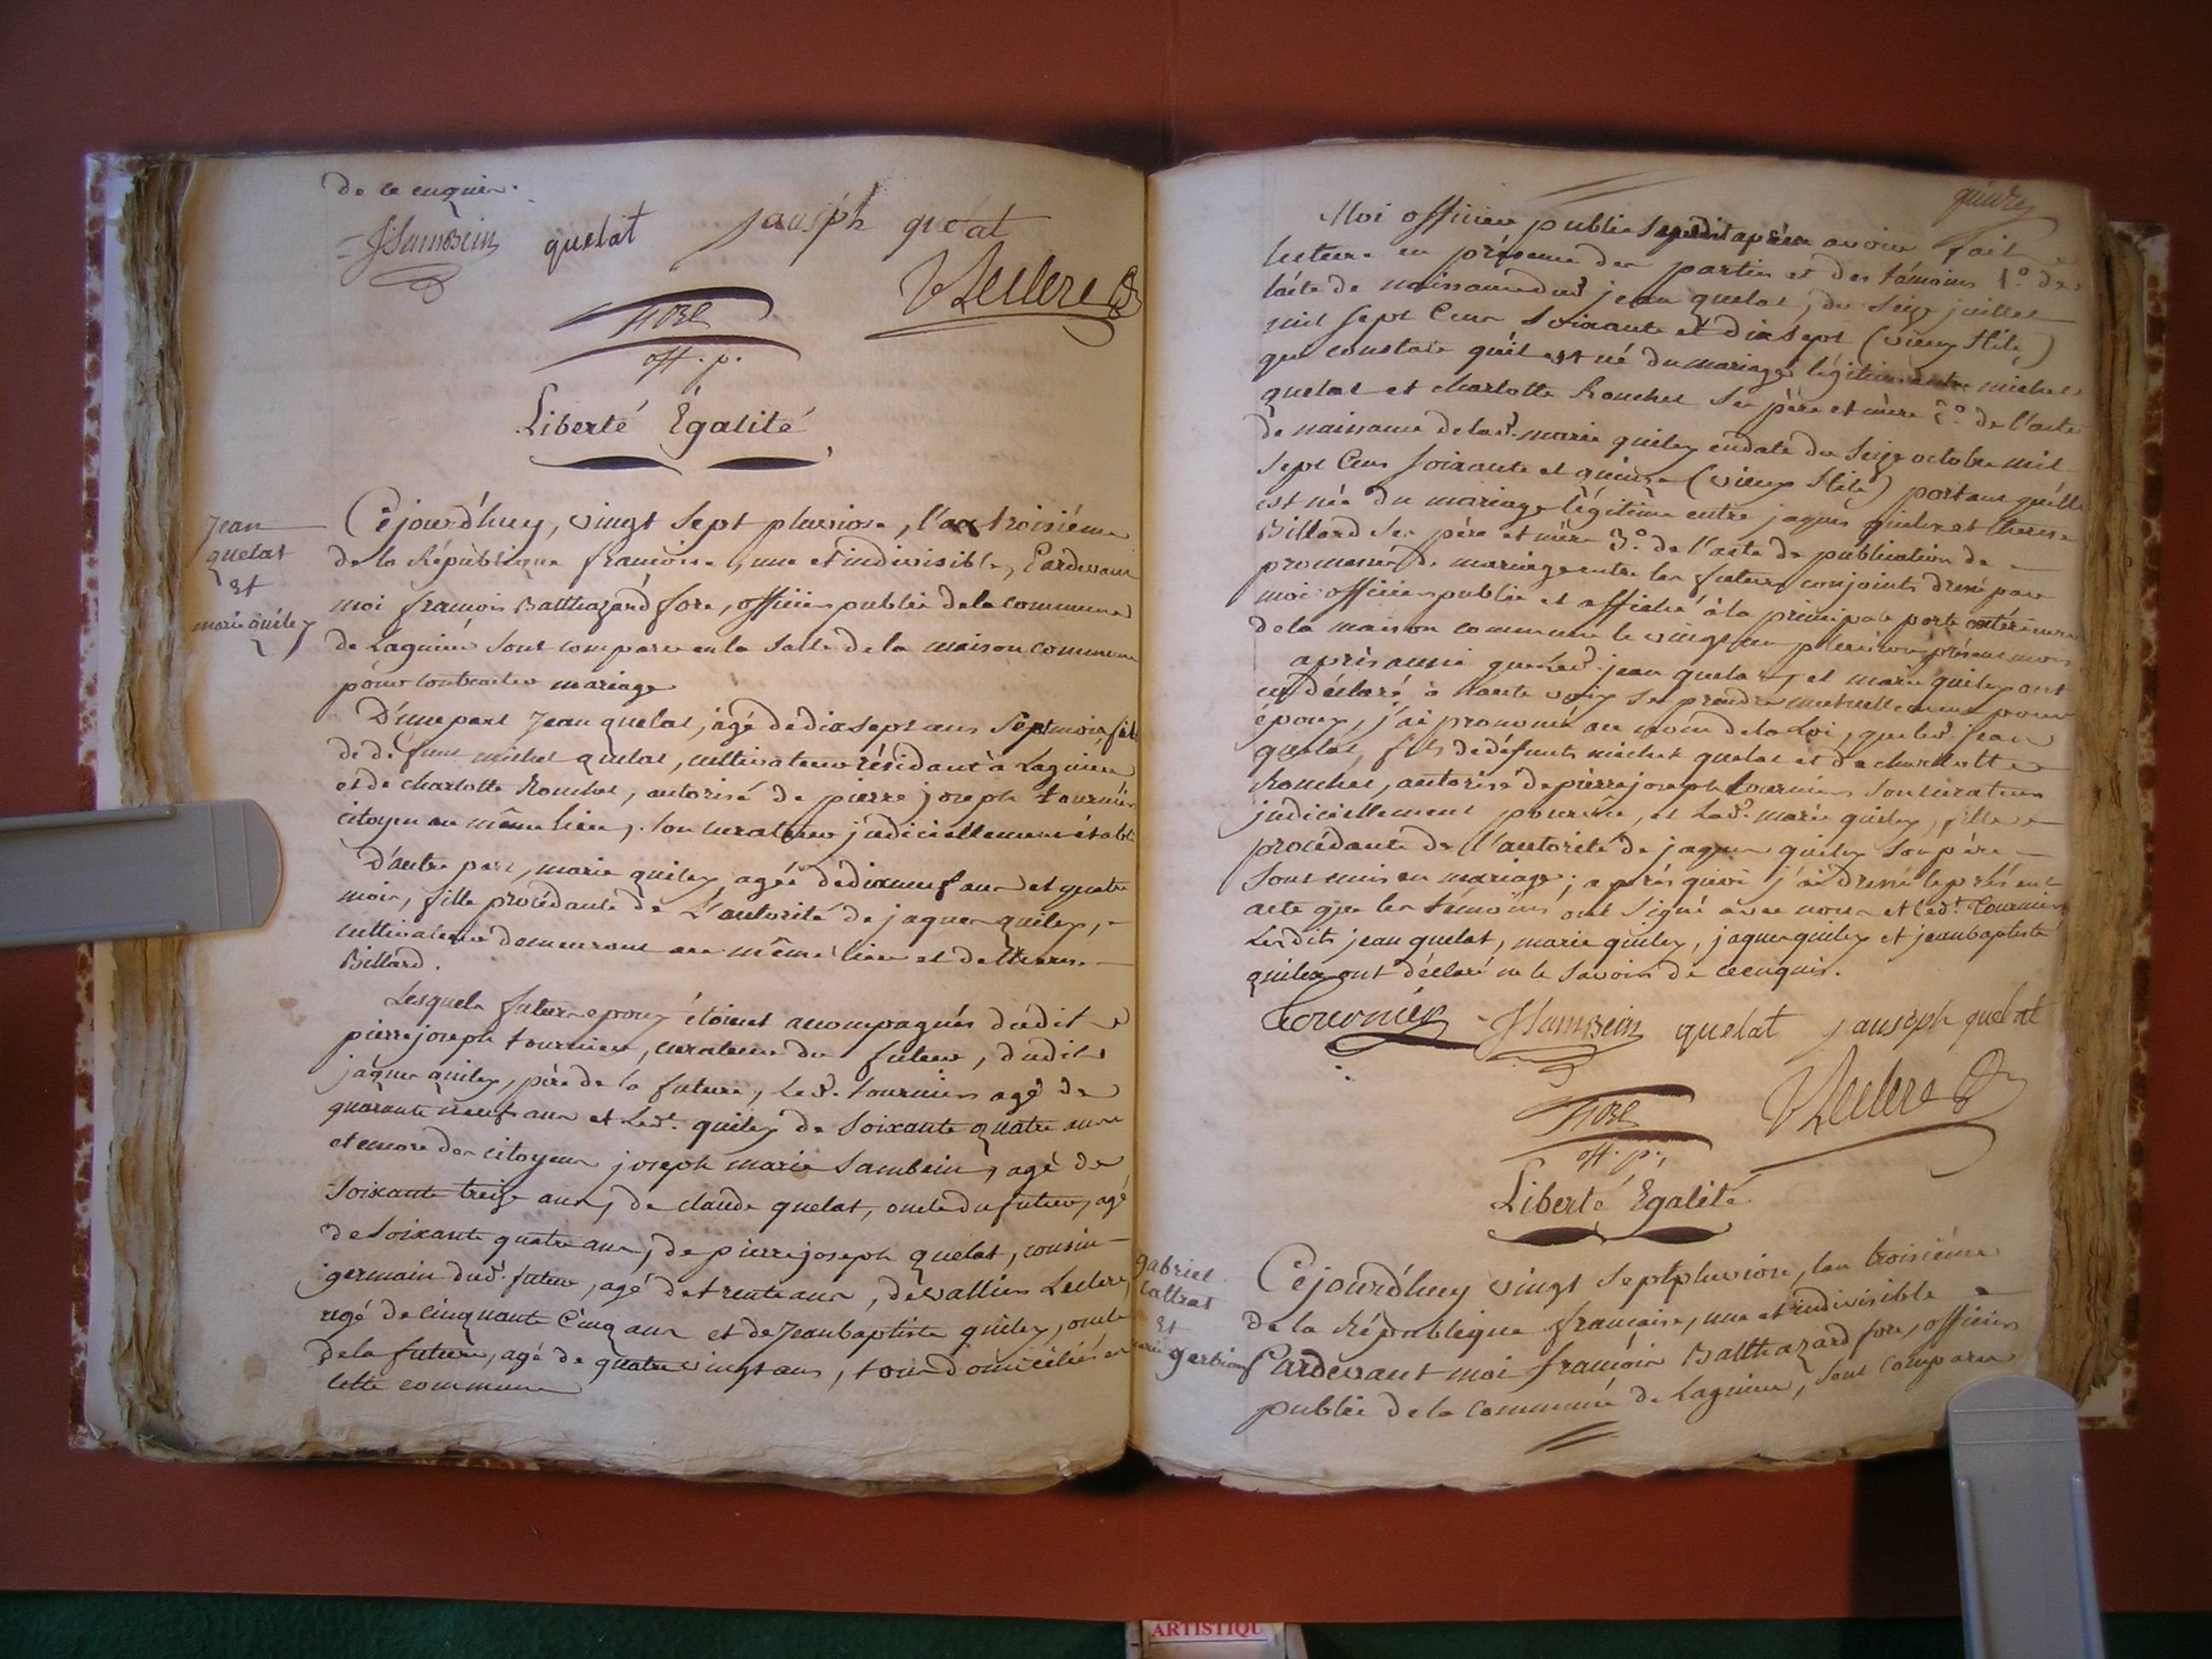 de ce enquis.
JSambein quelat jauseph quelat
VLeclerc
fore
off. p.
Liberté Égalité
Jean
quelat
et
marie quiley
Cejourd'huy, vingt sept pluviose, l'an troisiéme
de la République françoise, une et indivisible, Pardevant
moi françois Balthazard fore, officier public de la commune
de Lagnieu sont comparu en la salle de la maison commune
pour contracter mariage
D'une part Jean quelat, agé de dix sept ans sept mois, fils
de défunt michel quelat, cultivateur résidant à Lagnieu
et de charlotte Rouchet, autorisé de pierre joseph tournier
citoyen au même lieu, son curateur judiciellement établi
D'autre part, marie quiley agée de dix neuf ans et quatre
mois, fille procédante de L'autorité de jaques quiley,
cultivateur demeurant au même lieu et de therese
Billard.
Lesquels futurs epoux étoient accompagnés dudit
pierre joseph tournier, curateur du futur, dudit
jaques quiley, père de la future, led. tournier agé de
quarante neuf ans et Led. quiley de soixante quatre ans
et encore des citoyens joseph marie Sambein, agé de
soixante treize ans, de claude quelat, oncle du futur, agé
de soixante quatre ans, de pierre joseph quelat, cousin
germain dud. futur, agé de trente ans, de vallier Leclerc,
agé de cinquante Cinq ans et de Jean baptiste quiley, oncle
de la future, agé de quatre vingt ans, tous domiciliés en
cette commune
quinze
Moi officier public susdit après avoir fait
lecture en présence des parties et des témoins 1.o de
l'acte de naissance dud jean quelat, du seize juillet
mil sept Cent soixante et dix sept (vieux stile)
qui constate qu'il est né du mariage légitime entre michel
quelat et charlotte Rouchet ses père et mère 2.o de l'acte
de naissance de lad. marie quiley en date du seize octobre mil
sept Cens soixante et quinze (vieux stile) portant qu'elle
est née du mariage légitime entre jaques quiley et therese
Billard ses père et mère 3.o de l'acte de publication de
promesses de mariage entre les futurs conjoints dressé par
moi officier public et affiché à la principale porte extérieure
de la maison commune le vingt un pluviose présent mois
après aussi que led. jean quelat, et marie quiley ont
eu déclaré à haute voix se prendre mutuellement pour
époux, j'ai prononcé au nom de la Loi, que led. jean
quelat, fils de défunts michel quelat et de charlotte
Rouchet, autorisé de pierre joseph tournier son curateur
judiciellement pourvu, et Lad. marie quiley, fille
procédante de l'autorité de jaques quiley son père
sont unis en mariage; après quoi j'ai dressé le présent
acte que les témoins ont signé avec nous et led. tournier
Lesdits jean quelat, marie quiley, jaques quiley et jean baptiste
quiley ont déclaré ne le savoir de ce enquis.
Tournier JSambein quelat jauseph quelat
VLeclerc
fore
off. p.
Liberté Egalité
gabriel
et
gerbion
Cejourd'huy vingt sept pluviose, l'an troisiéme
de la République française, une et indivisible
Pardevant moi françois Balthazard fore, officier
public de la commune de Lagnieu, sont comparu
ARTISTIQU